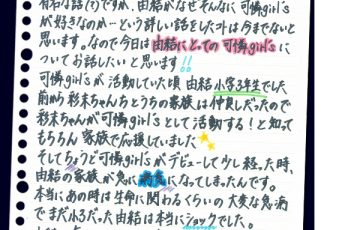 有名な話(?)ですが、由結がなぜそんなに可憐girl's
が好きなのか…という詳しい話をしたコトは今までないと
思います。なので今日は由結にとっての可憐girl'sに
ついてお話したいと思います!!
可憐girl'sが活動していた頃 由結小学3年生でした
前から彩未ちゃんちとうちの家族は仲良しだったので
彩未ちゃんが可憐girl'sとして活動する!と知って
もちろん 家族で応援していました
そしてちょうど可憐girl'sがデビューして少し経った時、
由結の家族が急に病気になってしまったんです。
本当にあの時は生命に関わるくらいの大変な急病
でまだ小3だった由結は本当にショックでした。